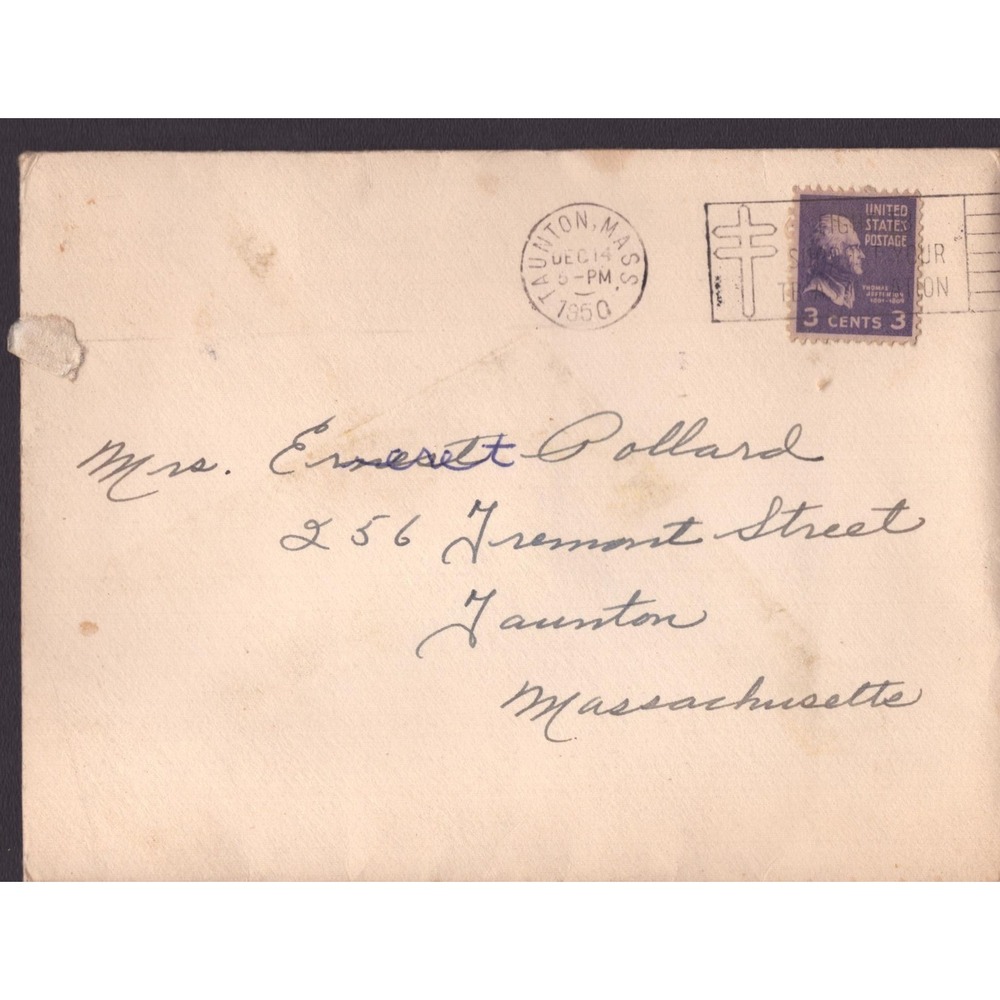 TAUNTON, MASS.
DEC 14
5-PM
1950
UNITED
STATES
POSTAGE
THOMAS
JEFFERSON
1801-1809
3 CENTS 3
Mrs. Everett Pollard
256 Tremont Street
Taunton
Massachusetts